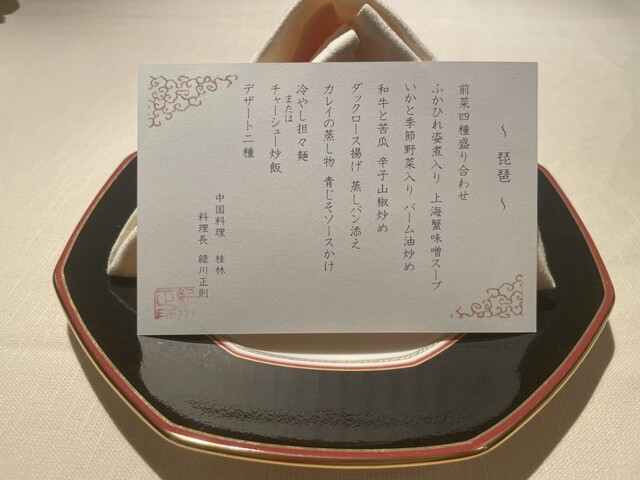 ～ 琵琶 ～
前菜四種盛り合わせ
ふかひれ姿煮入り 上海蟹味噌スープ
いかと季節野菜入り パーム油炒め
和牛と苦瓜 辛子山椒炒め
ダックロース揚げ 蒸しパン添え
カレイの蒸し物 青じそソースかけ
冷やし担々麺
または
チャーシュー炒飯
デザート二種
中国料理 桂林
料理長 緑川正則